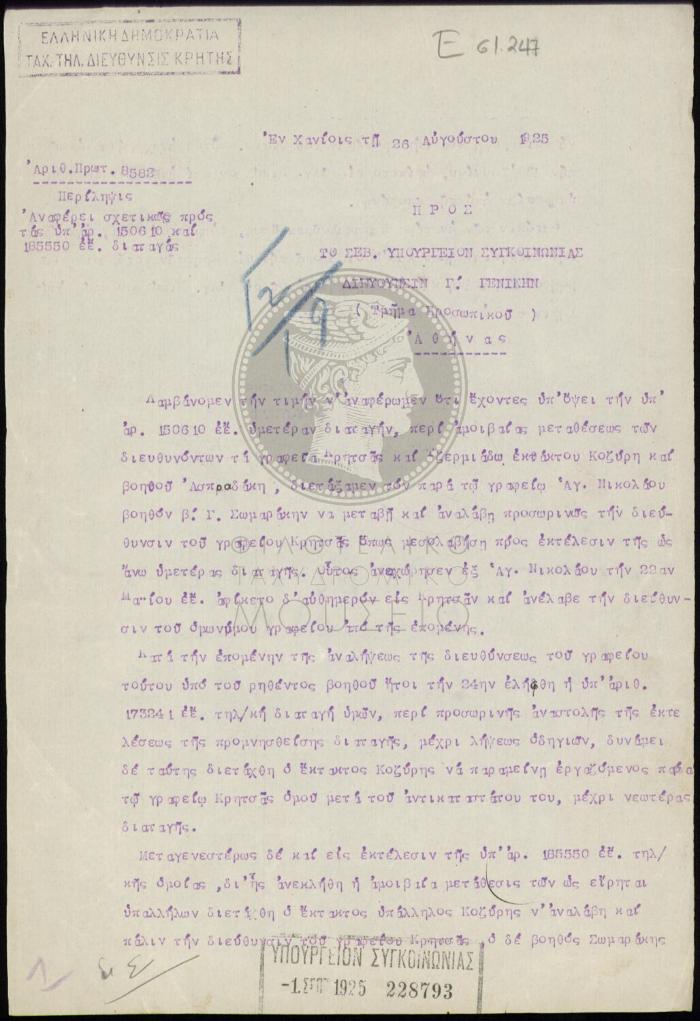 ΕΛΛΗΝΙΚΗ ΔΗΜΟΚΡΑΤΙΑ
ΤΑΧ. ΤΗΛ. ΔΙΕΥΘΥΝΣΙΣ ΚΡΗΤΗΣ
Ε 61.247
Ἐν Χανίοις τῇ 26 Αὐγούστου 1925
Ἀριθ.Πρωτ. 8582
Περίληψις
Ἀναφέρει σχετικῶς πρός
τάς ὑπ' ἀρ. 150610 καί
185550 ἐ.ἔ. διαταγάς
ΠΡΟΣ
ΤΟ ΣΕΒ. ΥΠΟΥΡΓΕΙΟΝ ΣΥΓΚΟΙΝΩΝΙΑΣ
ΔΙΕΥΘΥΝΣΙΝ Γ. ΓΕΝΙΚΗΝ
( Τμῆμα Προσωπικοῦ )
Ἀθήνας
12/9
Λαμβάνομεν τήν τιμήν ν'ἀναφέρωμεν ὅτι ἔχοντες ὑπ'ὄψει τήν ὑπ'
ἀρ. 150610 ἐ.ἔ. ὑμετέραν διαταγήν, περί ἀμοιβαίας μεταθέσεως τῶν
διευθυνόντων τά γραφεῖα Κρητσᾶς καί Τζερμιάδω ἐκτάκτου Κοζύρη καί
βοηθοῦ Ἀσπραδάκη , διετάξαμεν τόν παρά τῷ γραφείῳ Ἁγ. Νικολάου
βοηθόν β. Γ. Σωμαράκην νά μεταβῇ καί ἀναλάβῃ προσωρινῶς τήν διεύ-
θυνσιν τοῦ γραφείου Κρητσᾶς ὅπως μεσολαβήσῃ πρός ἐκτέλεσιν τῆς ὡς
ἄνω ὑμετέρας διαταγῆς. Οὗτος ἀναχώρησεν ἐξ Ἁγ. Νικολάου τήν 22αν
Μαΐου ἐ.ἔ. ἀφίκετο δ'αὐθημερόν εἰς Κρητσᾶν καί ἀνέλαβε τήν διεύθυν-
σιν τοῦ ὁμωνύμου γραφείου ἀπό τῆς ἑπομένης.
Κατά τήν ἑπομένην τῆς ἀναλήψεως τῆς διευθύνσεως τοῦ γραφείου
τούτου ὑπό τοῦ ρηθέντος βοηθοῦ ἤτοι τήν 24ην ἐλήφθη ἡ ὑπ'ἀριθ.
173241 ἐ.ἔ. τηλ/κή διαταγή ὑμῶν, περί προσωρινῆς ἀναστολῆς τῆς ἐκτε
λέσεως τῆς προμνησθείσης διαταγῆς, μέχρι λήψεως ὁδηγιῶν, δυνάμει
δέ ταύτης διετάχθη ὁ ἔκτακτος Κοζύρης νά παραμείνῃ ἐργαζόμενος παρά
τῷ γραφείῳ Κρητσᾶς ὁμοῦ μετά τοῦ ἀντικαταστάτου του, μέχρι νεωτέρας
διαταγῆς.
Μεταγενεστέρως δέ καί εἰς ἐκτέλεσιν τῆς ὑπ'ἀρ. 185550 ἐ.ἔ. τηλ/
κῆς ὁμοίας ,δι'ἧς ἀνεκλήθη ἡ ἀμοιβαία μετάθεσις τῶν ὡς εἴρηται
ὑπαλλήλων διετάχθη ὁ ἔκτακτος ὑπάλληλος Κοζύρης ν'ἀναλάβῃ καί
πάλιν τήν διεύθυνσιν τοῦ γραφείου Κρητσᾶς ,ὁ δέ βοηθός Σωμαράκης
ΥΠΟΥΡΓΕΙΟΝ ΣΥΓΚΟΙΝΩΝΙΑΣ
-1.ΣΕΠ 1925 228793
ΦΙΛΟΤΕΛΙΚΟ
ΤΑΧΥΔΡΟΜΙΚΟ
ΜΟΥΣΕΙΟ